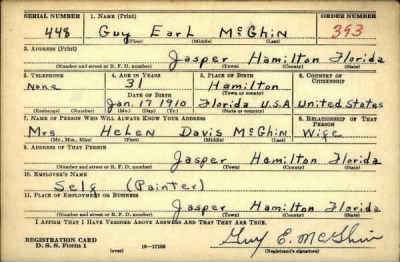 SERIAL NUMBER 1. NAME (Print) ORDER NUMBER
448 Guy Earl McGhin 393
(First) (Middle) (Last)
2. ADDRESS (Print)
Jasper Hamilton Florida
(Number and street or R. F. D. number) (Town) (County) (State)
3. TELEPHONE 4. AGE IN YEARS 5. PLACE OF BIRTH 6. COUNTRY OF CITIZENSHIP
None 31 Hamilton
DATE OF BIRTH (Town or county)
Jan. 17 1910 Florida U.S.A United States
(Exchange) (Number) (Mo.) (Day) (Yr.) (State or country)
7. NAME OF PERSON WHO WILL ALWAYS KNOW YOUR ADDRESS 8. RELATIONSHIP OF THAT PERSON
Mrs Helen Davis McGhin Wife
(Mr., Mrs., Miss) (First) (Middle) (Last)
9. ADDRESS OF THAT PERSON
Jasper Hamilton Florida
(Number and street or R. F. D. number) (Town) (County) (State)
10. EMPLOYER'S NAME
Self (Painter)
11. PLACE OF EMPLOYMENT OR BUSINESS
Jasper Hamilton Florida
(Number and street or R. F. D. number) (Town) (County) (State)
I AFFIRM THAT I HAVE VERIFIED ABOVE ANSWERS AND THAT THEY ARE TRUE.
REGISTRATION CARD
D. S. S. Form 1 (over) 16-17105 Guy E. McGhin
(Registrant's signature)